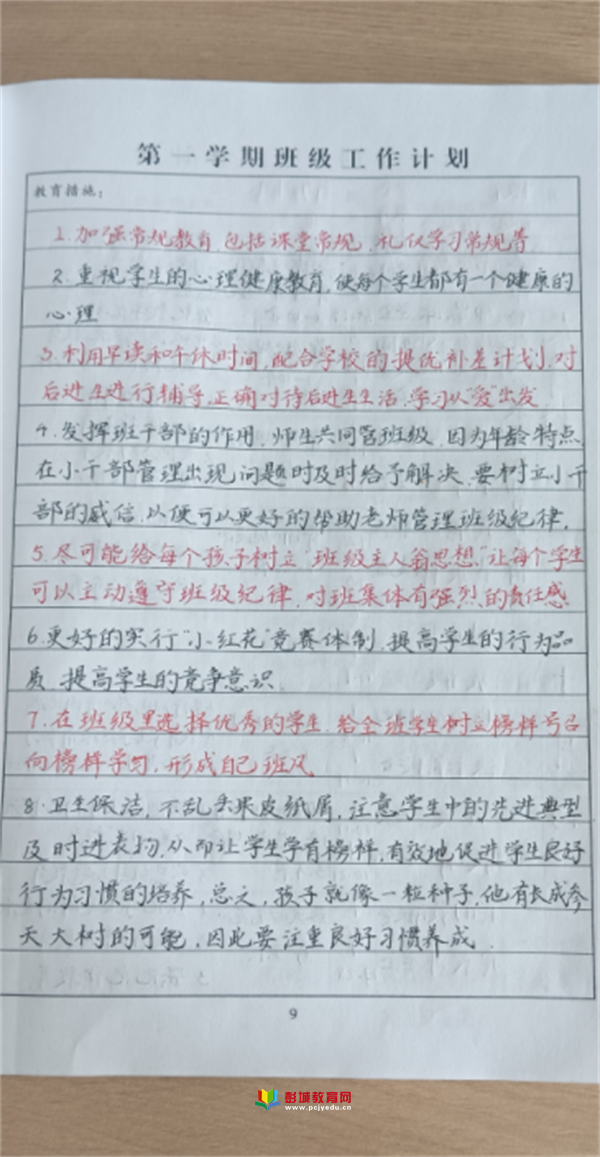 第一学期班级工作计划
教育措施：
1.加强常规教育,包括课堂常规、礼仪学习常规等
2.重视学生的心理健康教育,使每个学生都有一个健康的
心理
3.利用早读和午休时间,配合学校的提优补差计划,对
后进生进行辅导,正确对待后进生生活、学习从“爱”出发
4.发挥班干部的作用,师生共同管班级,因为年龄特点,
在小干部管理出现问题时及时给予解决,要树立小干
部的威信,以便可以更好的帮助老师管理班级纪律,
5.尽可能给每个孩子树立“班级主人翁思想”让每个学生
可以主动遵守班级纪律,对班集体有强烈的责任感
6.更好的实行“小红花”竞赛体制,提高学生的行为品
质,提高学生的竞争意识.
7.在班级里选择优秀的学生,给全班学生树立榜样号召
向榜样学习,形成自己班风
8.卫生保洁,不乱丢果皮纸屑,注意学生中的先进典型
及时进表扬,从而让学生学有榜样,有效地促进学生良好
行为习惯的培养,总之,孩子就像一粒种子,他有长成参
天大树的可能,因此要注重良好习惯养成.
9
彭城教育网
www.pcjyedu.cn